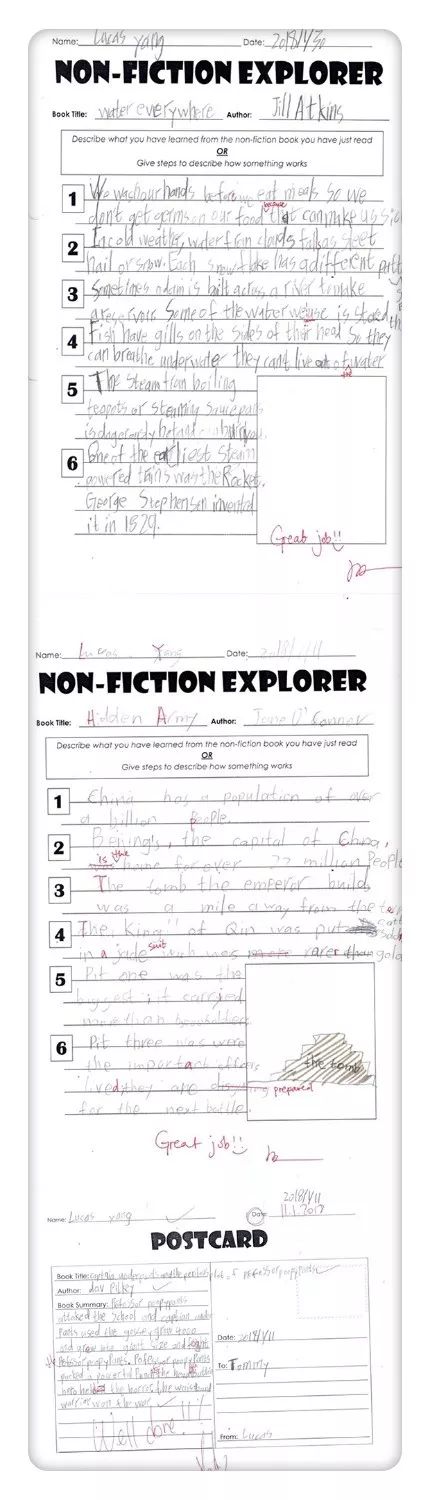 Name: Lucas Yang Date: 2018/1/30
NON-FICTION EXPLORER
Book Title: water everywhere Author: Jill Atkins
Describe what you have learned from the non-fiction book you have just read
OR
Give steps to describe how something works
1 We wash our hands before we eat meals so we
because
don't get germs on our food that can make us sick
2 In cold weather, water from clouds falls as sleet
hail or snow. Each snowflake has a different
3 Sometimes a dam is built across a river to make
a reservoir Some of the water we use is stored
4 Fish have gills on the sides of their head So they
can breathe underwater they can't live out of water
the
5 The steam from boiling
teapots or steaming saucepans
is dangerously hot and can burn you.
6 One of the earliest steam
powered trains was the Rocket.
George Stephenson invented
it in 1829.
Great job!!
Name: Lucas Yang Date: 2018/1/11
NON-FICTION EXPLORER
Book Title: Hidden Army Author: Jane O'Connor
Describe what you have learned from the non-fiction book you have just read
OR
Give steps to describe how something works
1 China has a population of over
a billion people.
2 Beijing's, the capital of China,
is the home for over 22 million People
3 The tomb the emperor builds
was a mile away from the
4 The King of Qin was put
in a jade suit which was rarer than gold
5 Pit one was the
biggest it carried
more than
6 Pit three was were
the important officers
lived they are prepared
for the next battle.
the tomb
Great job!!
2018/1/11
Name: Lucas Yang Date: 11.1.2017
POSTCARD
Book Title: captain underpants and the perilous plot of professor poopypants
Author: Dav Pilkey
Book Summary: Professor poopypants
attacked the school and captain under
Pants used the goosey grow 4000
and grow into giant size and fight
Professor poopypants. Professor poopy Pants
warrior won the war
Well done!!
Date: 2018/1/11
To: Tommy
From: Lucas